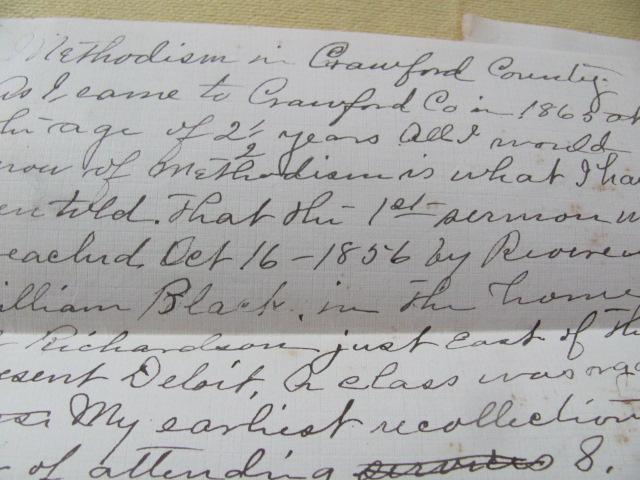 Methodism in Crawford County.
As I came to Crawford Co in 1865 at
the age of 2½ years All I would
know of Methodism is what I have
been told. That the 1st sermon
preached Oct 16 - 1856 by Reverend
William Black. in the home
Richardson just East of the
present Deloit, a class was
My earliest recollection
of attending services 8.